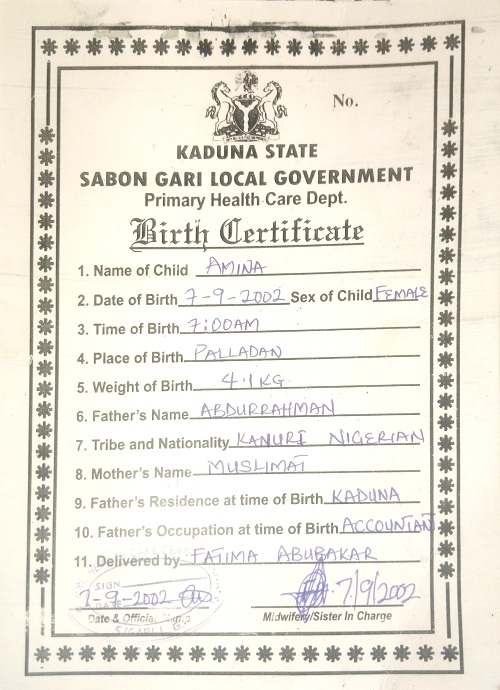 No.
KADUNA STATE
SABON GARI LOCAL GOVERNMENT
Primary Health Care Dept.
Birth Certificate
1. Name of Child AMINA
2. Date of Birth 7-9-2002 Sex of Child FEMALE
3. Time of Birth 7:00AM
4. Place of Birth PALLADAN
5. Weight of Birth 4.1KG
6. Father's Name ABDURRAHMAN
7. Tribe and Nationality KANURI NIGERIAN
8. Mother's Name MUSLIMAT
9. Father's Residence at time of Birth KADUNA
10. Father's Occupation at time of Birth ACCOUNTANT
11. Delivered by FATIMA ABUBAKAR
SIGN
DATE
7-9-2002 7/9/2002
Date & Official Stamp Midwifery/Sister In Charge